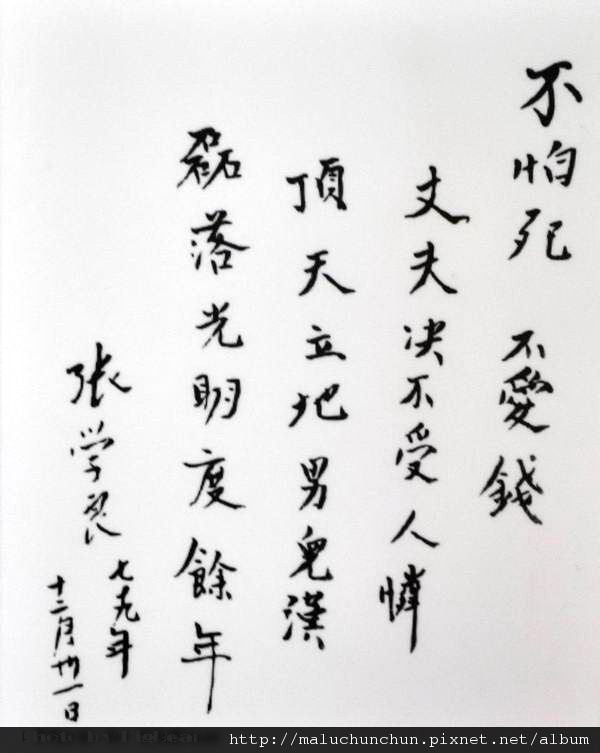 不怕死 不愛錢
丈夫决不受人憐
頂天立地男兒漢
磊落光明度餘年
張学良
七九年
十二月卅一日
http://maluchunchun.pixnet.net/album